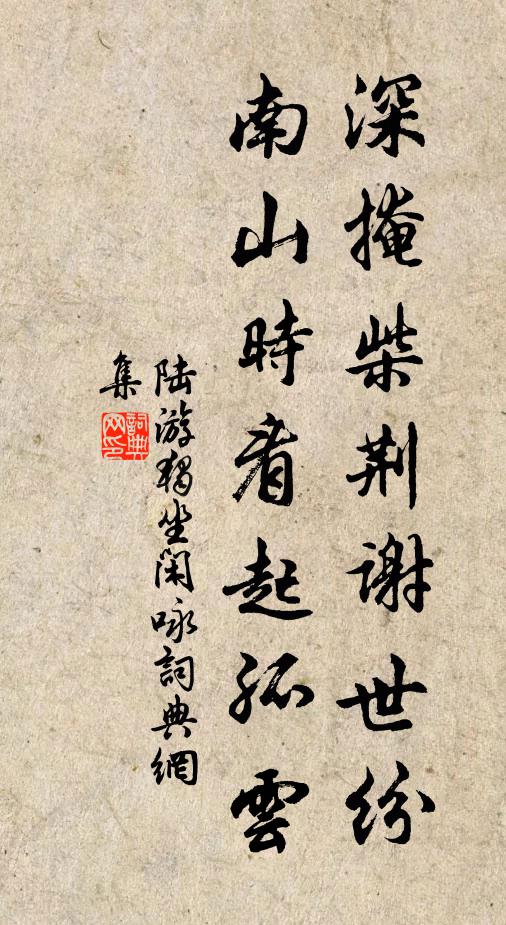 深掩柴荆謝世紛
南山時看起孤雲
陸游獨坐閑咏詞典網
集
詞典网印